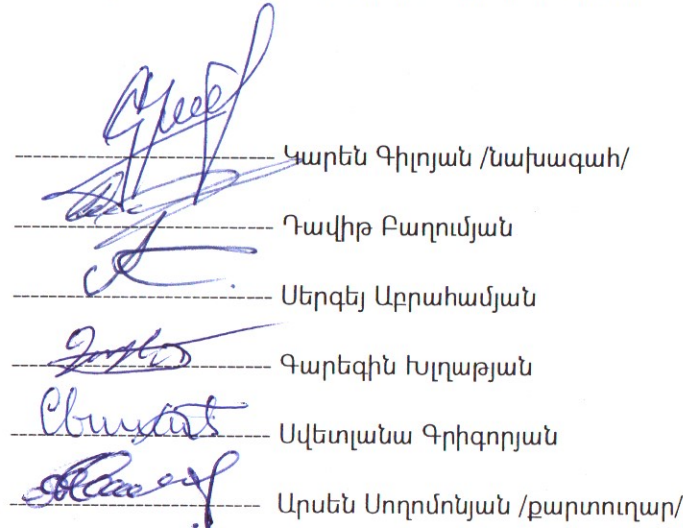 Կարեն Գիլոյան /նախագահ/
Դավիթ Բաղումյան
Սերգեյ Աբրահամյան
Գարեգին Խլղաթյան
Սվետլանա Գրիգորյան
Արսեն Սողոմոնյան /քարտուղար/